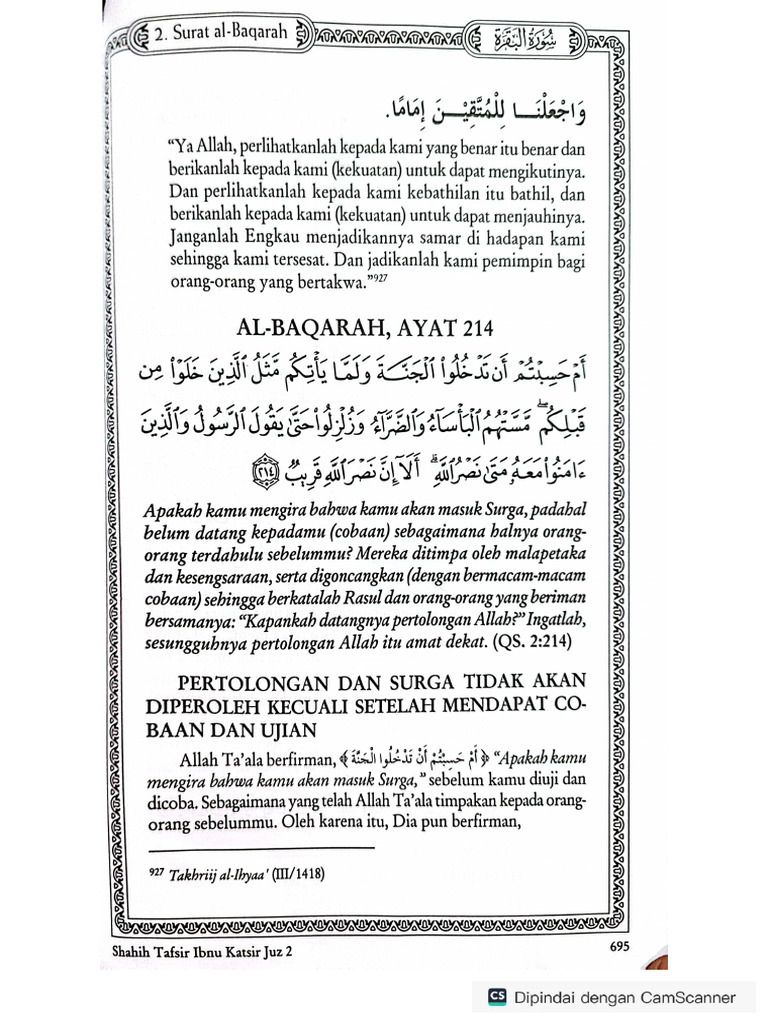 2. Surat al-Baqarah
سُوْرَةُ الْبَقَرَةِ
وَاجْعَلْنَــا لِلْمُتَّقِيْــنَ إِمَامًا.
“Ya Allah, perlihatkanlah kepada kami yang benar itu benar dan
berikanlah kepada kami (kekuatan) untuk dapat mengikutinya.
Dan perlihatkanlah kepada kami kebathilan itu bathil, dan
berikanlah kepada kami (kekuatan) untuk dapat menjauhinya.
Janganlah Engkau menjadikannya samar di hadapan kami
sehingga kami tersesat. Dan jadikanlah kami pemimpin bagi
orang-orang yang bertakwa.”927
AL-BAQARAH, AYAT 214
أَمْ حَسِبْتُمْ أَن تَدْخُلُوا۟ ٱلْجَنَّةَ وَلَمَّا يَأْتِكُم مَّثَلُ ٱلَّذِينَ خَلَوْا۟ مِن
قَبْلِكُم ۖ مَّسَّتْهُمُ ٱلْبَأْسَآءُ وَٱلضَّرَّآءُ وَزُلْزِلُوا۟ حَتَّىٰ يَقُولَ ٱلرَّسُولُ وَٱلَّذِينَ
ءَامَنُوا۟ مَعَهُۥ مَتَىٰ نَصْرُ ٱللَّهِ ۗ أَلَآ إِنَّ نَصْرَ ٱللَّهِ قَرِيبٌ ٢١٤
Apakah kamu mengira bahwa kamu akan masuk Surga, padahal
belum datang kepadamu (cobaan) sebagaimana halnya orang-
orang terdahulu sebelummu? Mereka ditimpa oleh malapetaka
dan kesengsaraan, serta digoncangkan (dengan bermacam-macam
cobaan) sehingga berkatalah Rasul dan orang-orang yang beriman
bersamanya: “Kapankah datangnya pertolongan Allah?” Ingatlah,
sesungguhnya pertolongan Allah itu amat dekat. (QS. 2:214)
PERTOLONGAN DAN SURGA TIDAK AKAN
DIPEROLEH KECUALI SETELAH MENDAPAT CO-
BAAN DAN UJIAN
Allah Ta'ala berfirman, ﴿ أَمْ حَسِبْتُمْ أَنْ تَدْخُلُوا الْجَنَّةَ ﴾ “Apakah kamu
mengira bahwa kamu akan masuk Surga,” sebelum kamu diuji dan
dicoba. Sebagaimana yang telah Allah Ta'ala timpakan kepada orang-
orang sebelummu. Oleh karena itu, Dia pun berfirman,
927 Takhriij al-Ihyaa' (III/1418)
Shahih Tafsir Ibnu Katsir Juz 2
695
CS Dipindai dengan CamScanner